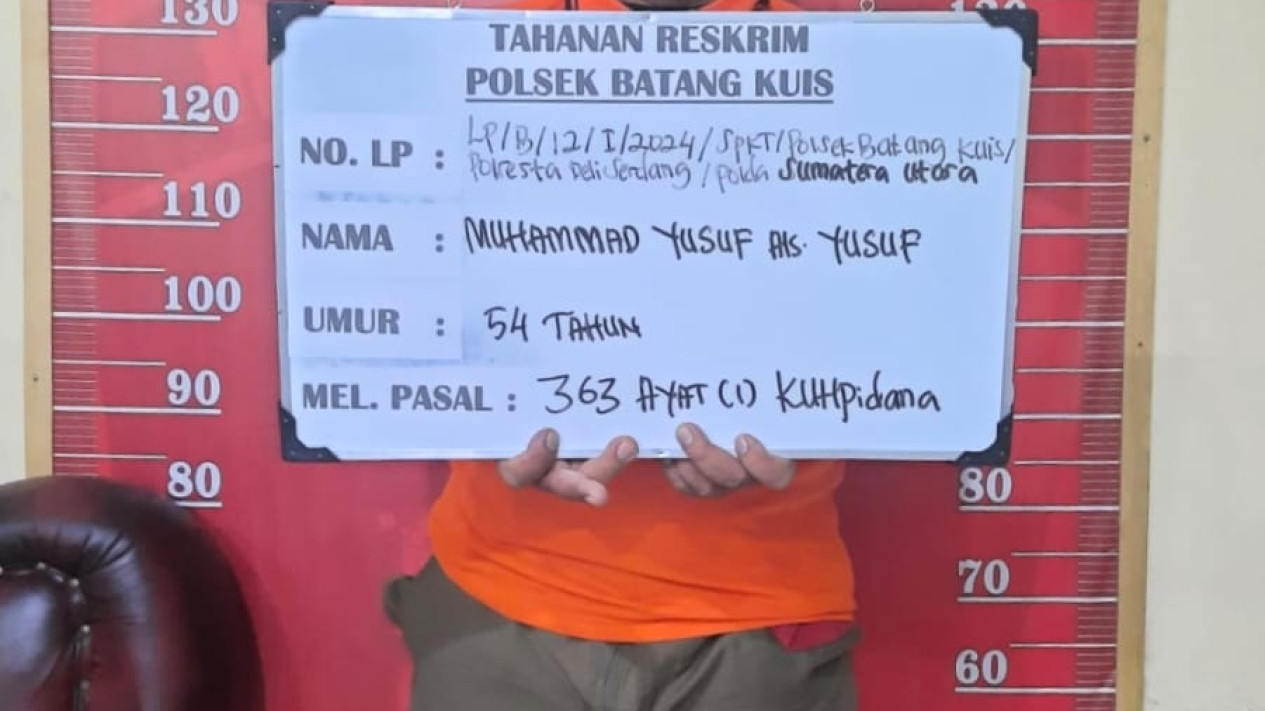 TAHANAN RESKRIM
POLSEK BATANG KUIS
NO. LP : LP/B/12/I/2024/SPKT/Polsek Batang Kuis/
Polresta Deli Serdang/Polda Sumatera Utara
NAMA : MUHAMMAD YUSUF Als. YUSUF
UMUR : 54 TAHUN
MEL. PASAL : 363 AYAT (1) KUHPidana
130
120
110
100
90
80
130
80
70
60